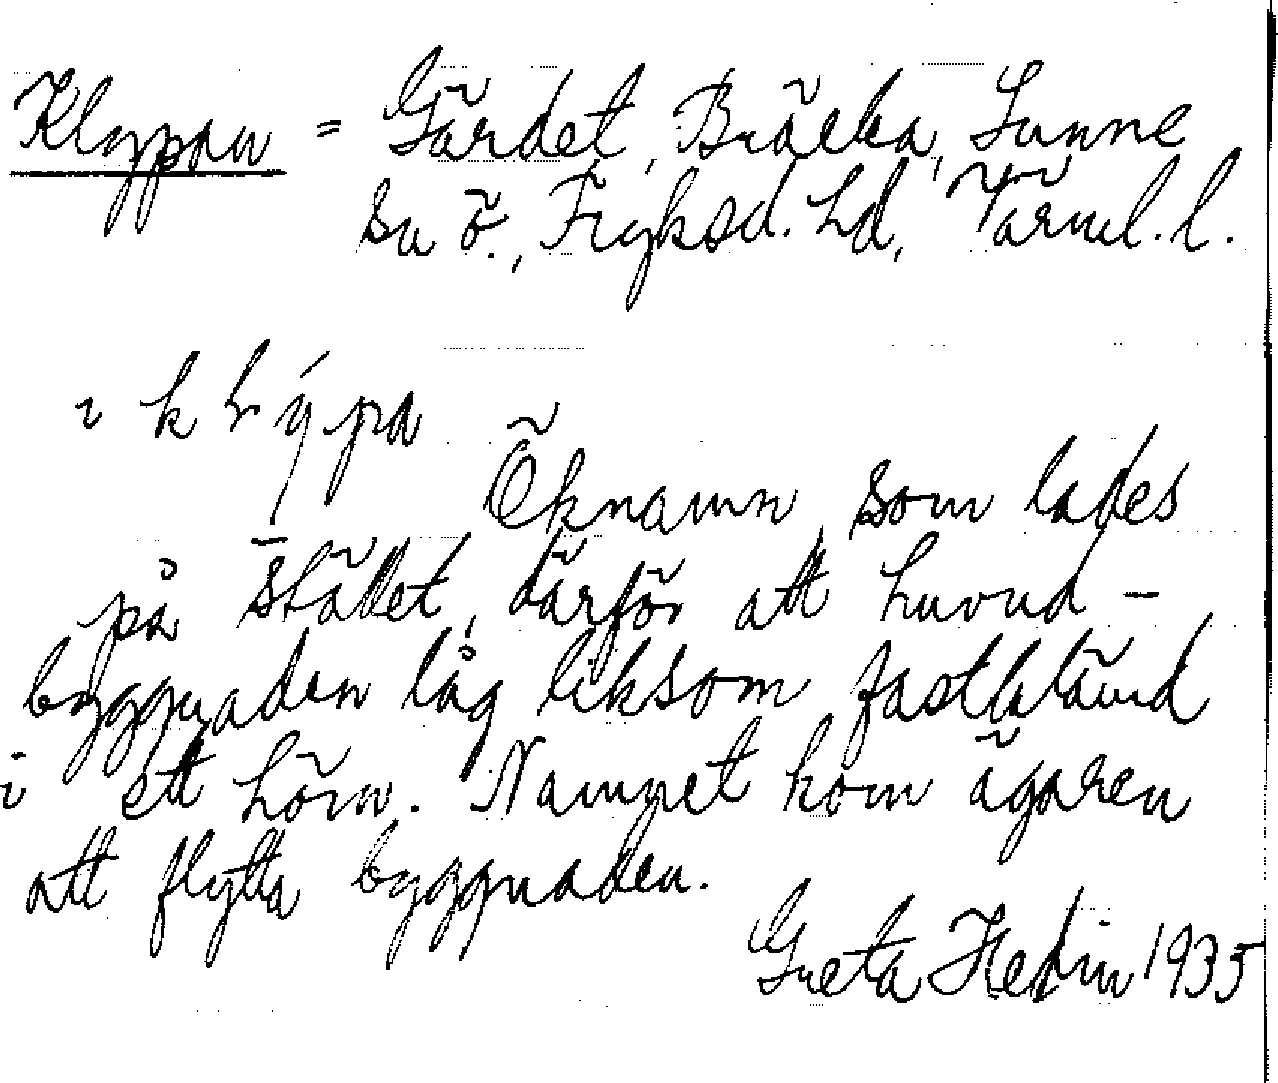 Klypan = Gärdet, Bräcka, Sunne
sn ö., Fryksd. hd, Värml. l.
i
Öknamn, som lades
på stället, därför att huvud-
byggnaden låg liksom fastklämd
i ett hörn. Namnet kom ägaren
att flytta byggnaden.
Greta Hedin 1935